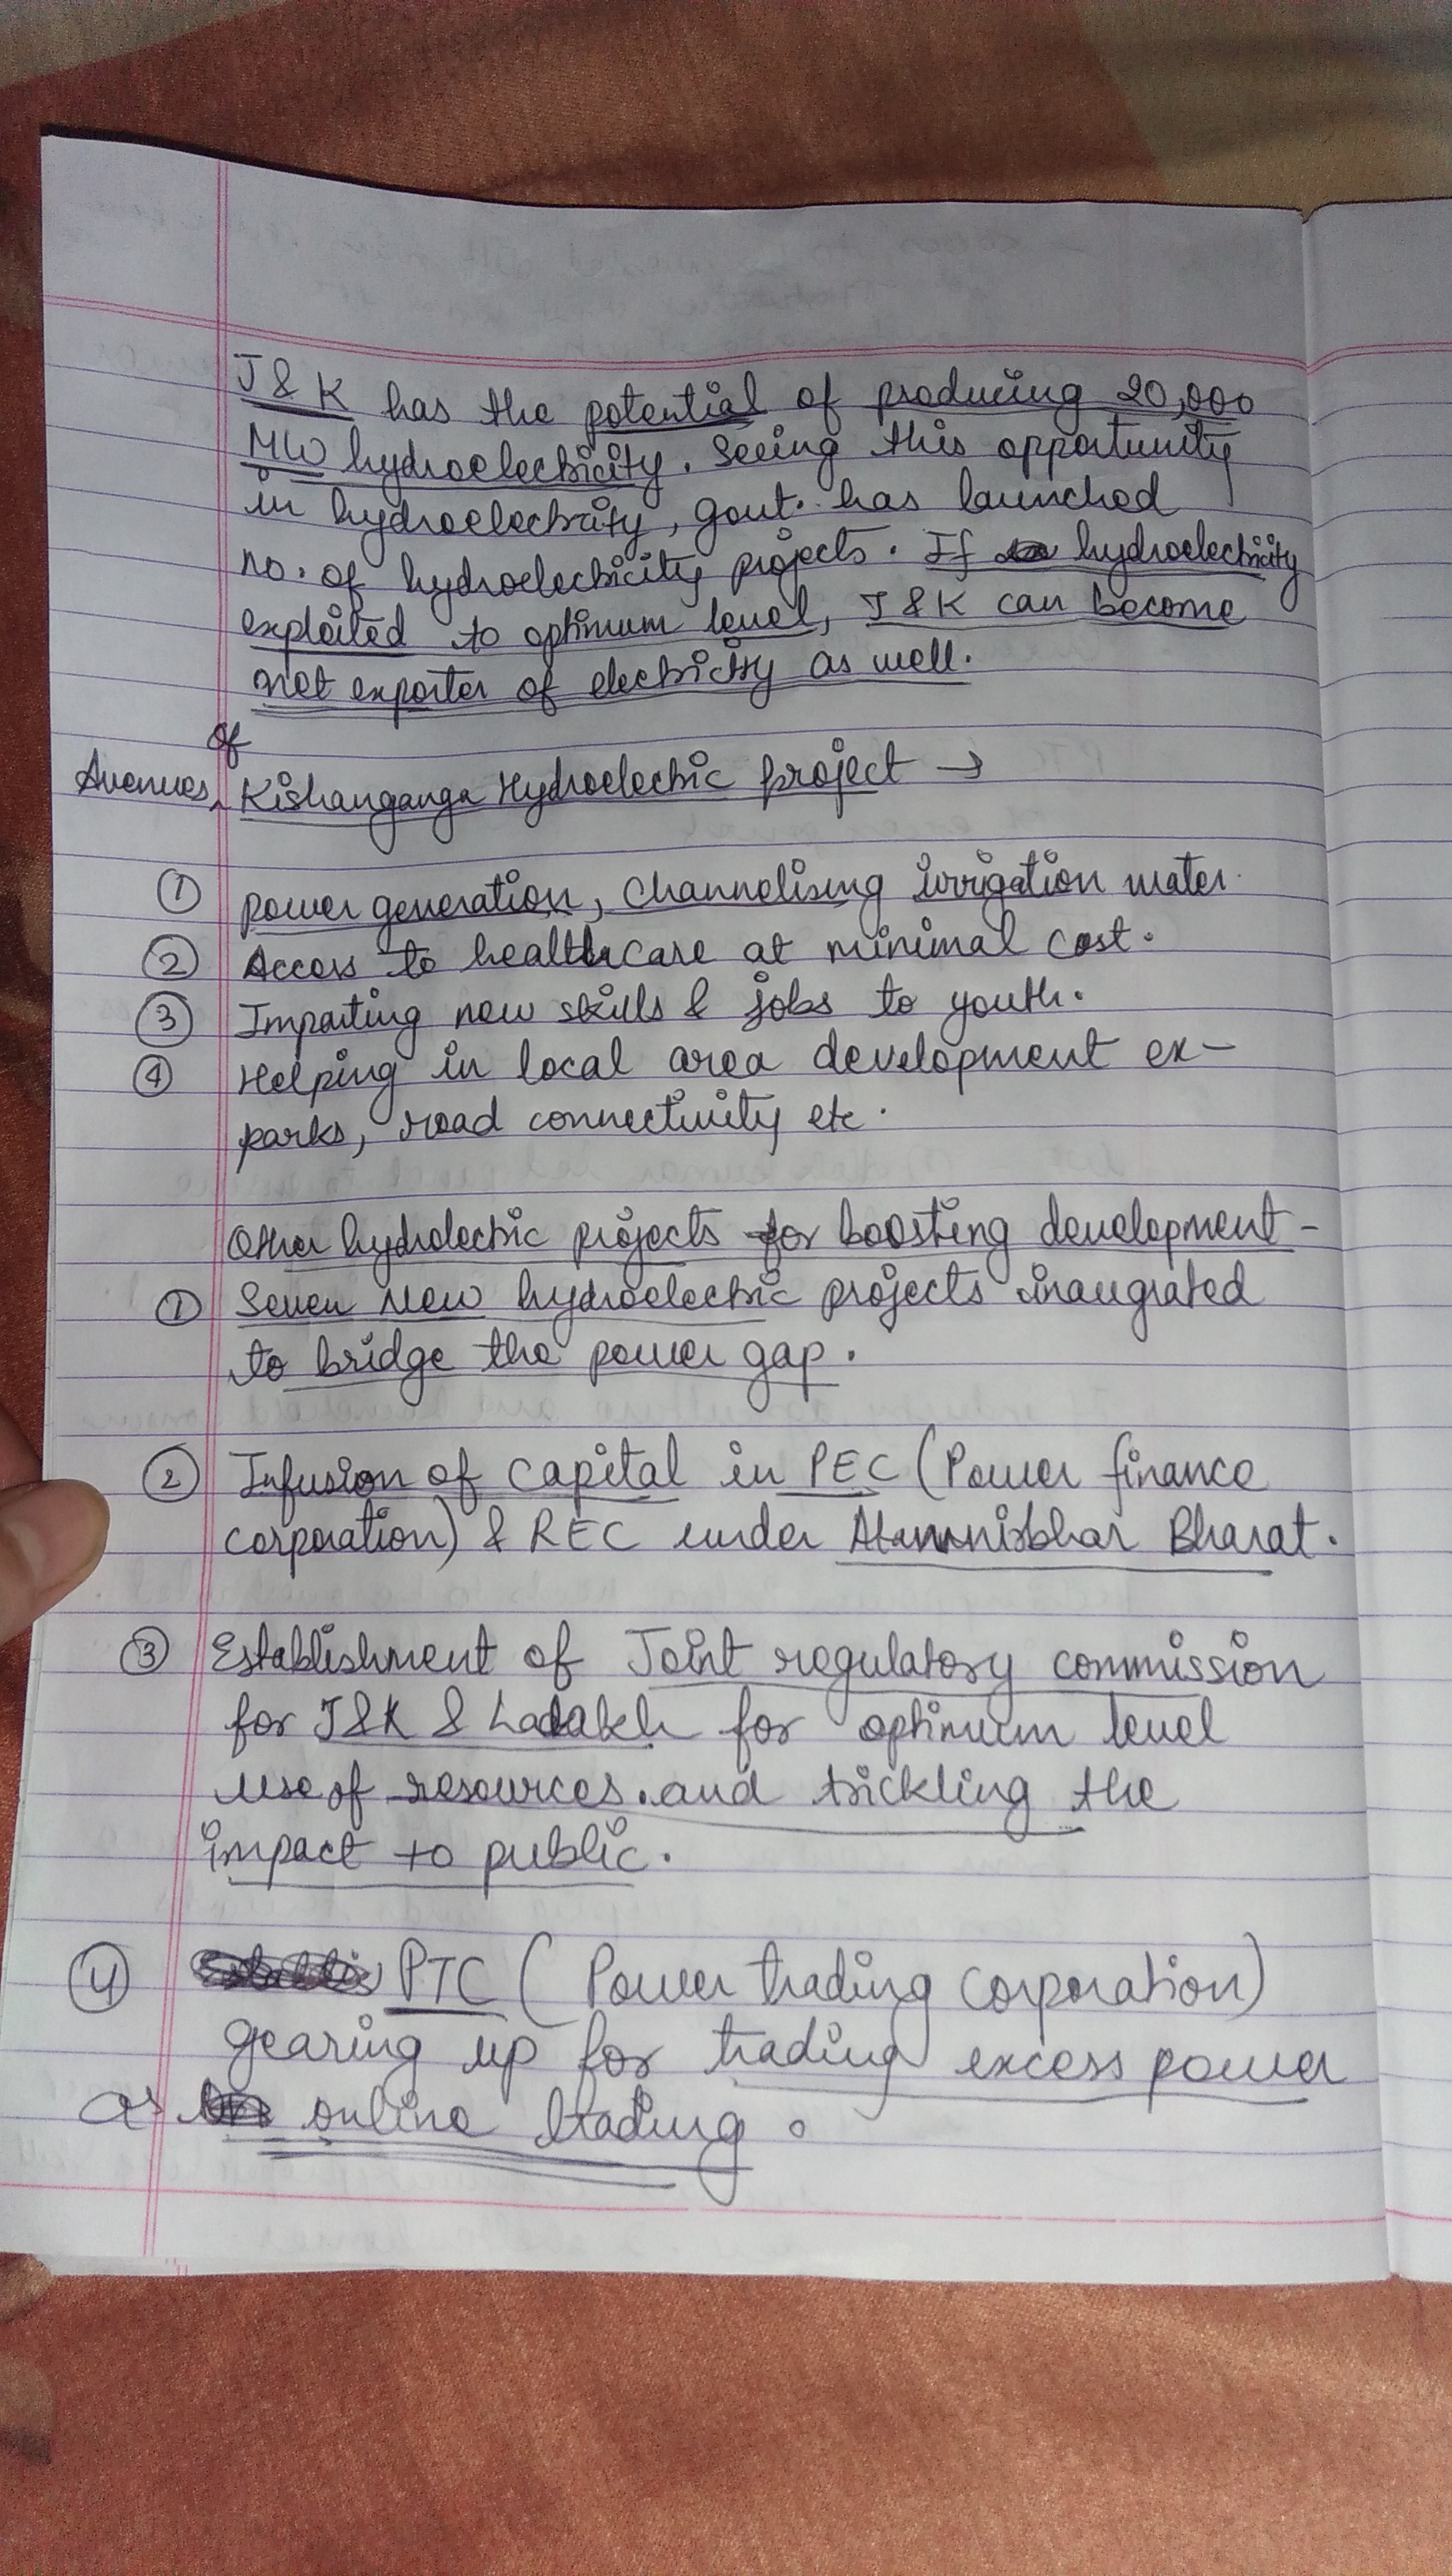 J & K has the potential of producing 20,000
MW hydroelectricity. Seeing this opportunity
in hydroelectricity, govt. has launched
no. of hydroelectricity projects. If hydroelectricity
exploited to optimum level, J & K can become
net exporter of electricity as well.
Avenues of Kishanganga Hydroelectric project →
① power generation, Channelising irrigation water.
② Access to healthcare at minimal cost.
③ Imparting new skills & jobs to youth.
④ Helping in local area development ex-
parks, road connectivity etc.
Other hydrolectric projects for boosting development -
① Seven New hydroelectric projects inaugrated
to bridge the power gap.
② Infusion of capital in PEC (Power finance
corporation) & REC under Atamnirbhar Bharat.
③ Establishment of Joint regulatory commission
for J&K & Ladakh for optimum level
use of resources. and trickling the
impact to public.
④ PTC ( Power trading Corporation)
gearing up for trading excess power
as online trading.